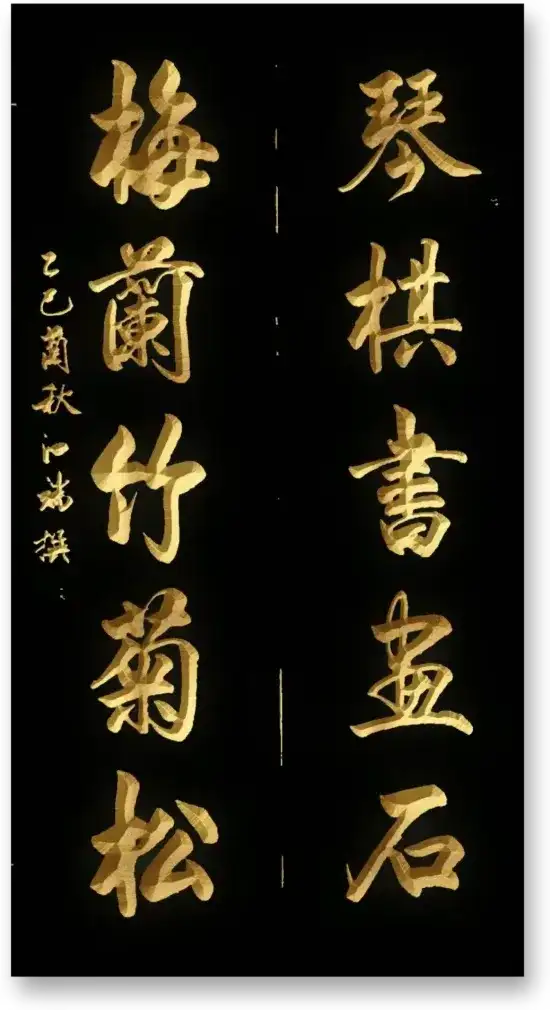 琴棋書畫石
梅蘭竹菊松
乙巳蘭秋江瑞撰